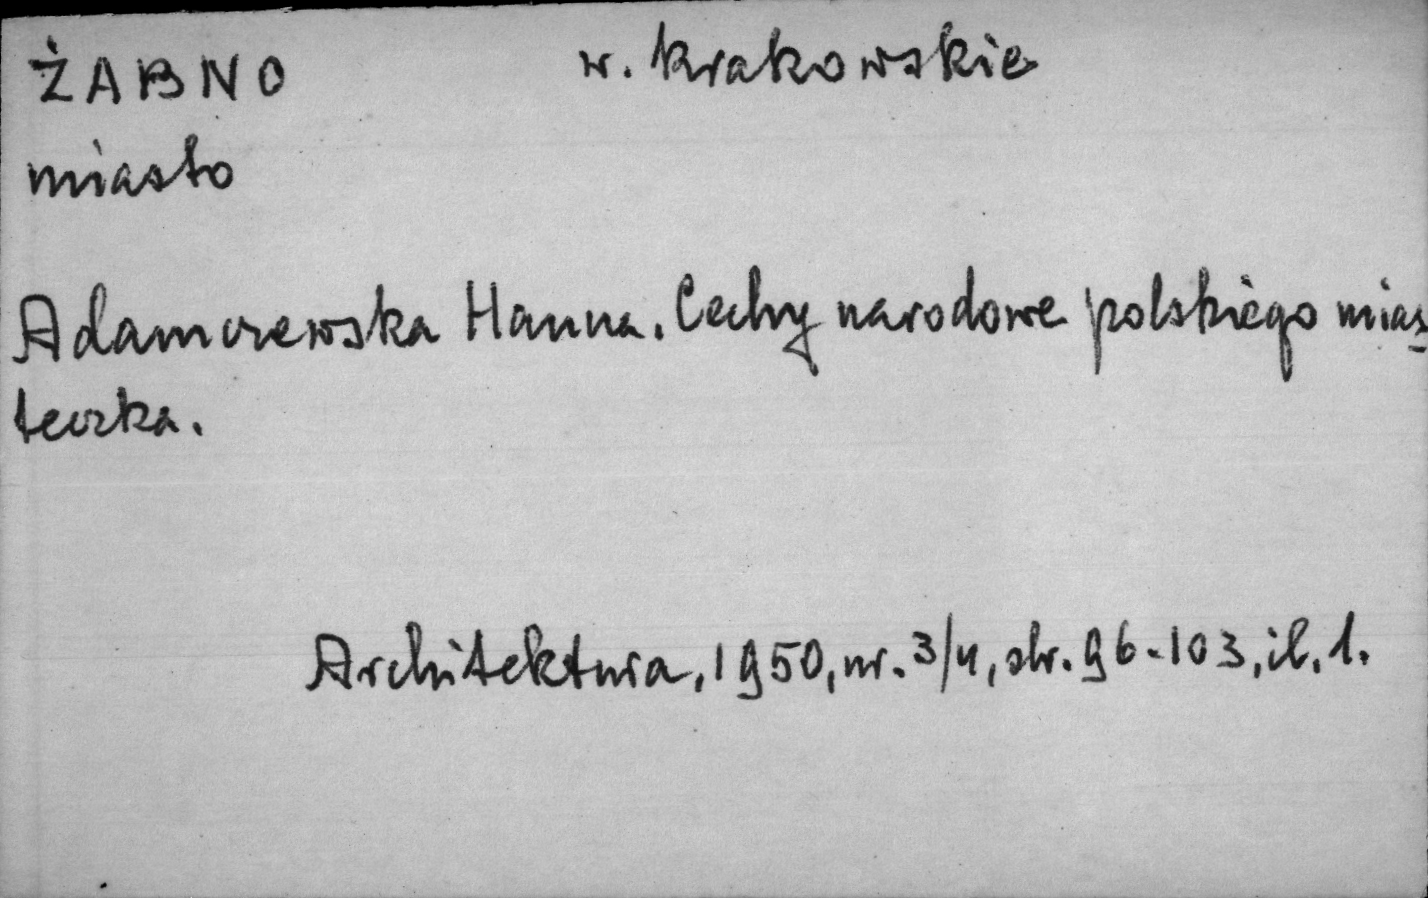 ŻABNO w. krakowskie
miasto
Adamczewska Hanna. Cechy narodowe polskiego mias
teczka.
Architektura, 1950, nr. 3/4, str. 96-103, il. 1.